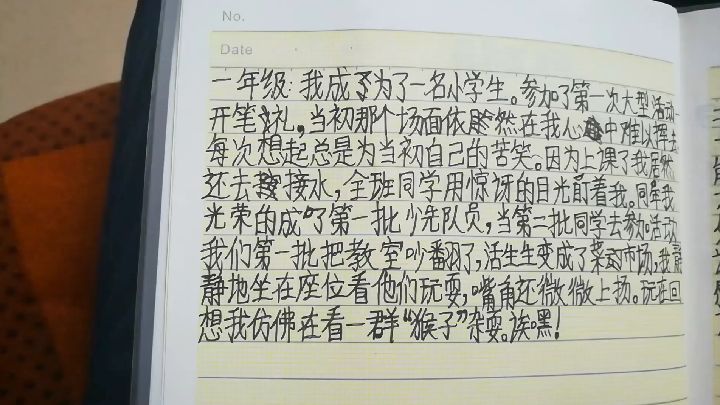 No.
Date
一年级: 我成了为了一名小学生。参加了第一次大型活动
开笔礼,当初那个场面依然在我心中难以挥去
每次想起总是为当初自己的苦笑。因为上课了我居然
还去接水,全班同学用惊讶的目光盯着我。同年我
光荣的成了第一批少先队员,当第二批同学去参加活动
我们第一批把教室吵翻了,活生生变成了菜市场,我静
静地坐在座位看他们玩耍,嘴角还微微上扬。玩在回
想我仿佛在看一群“猴子”杂耍。诶嘿!